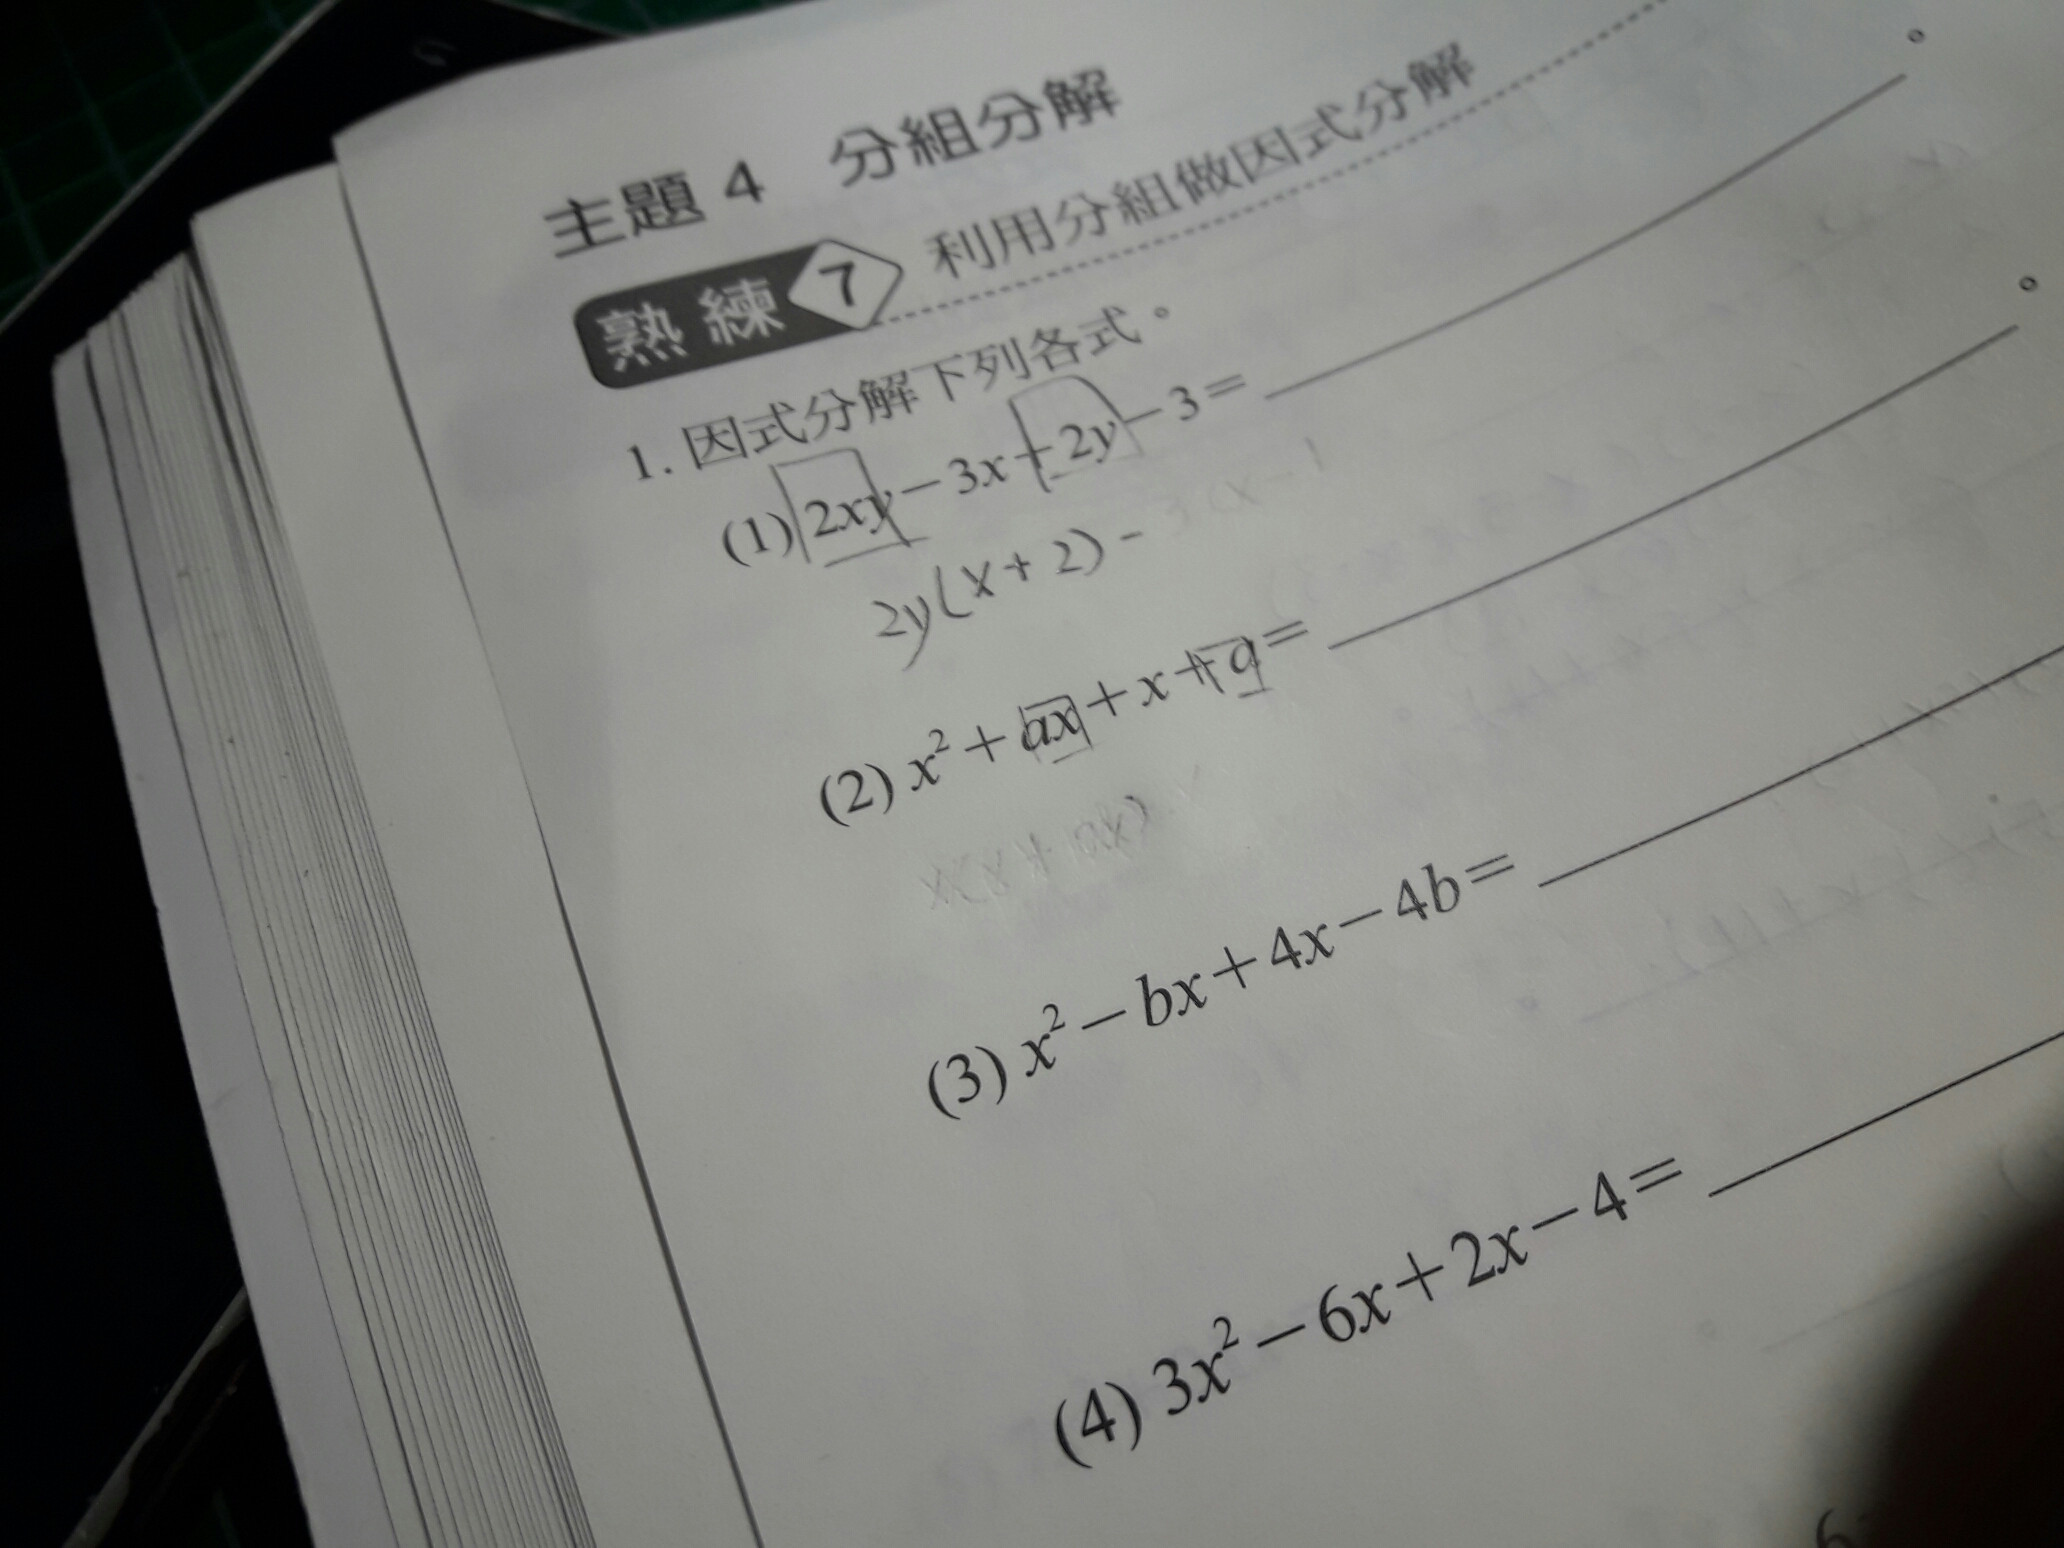 主題 4 分組分解
熟練 7 利用分組做因式分解
1. 因式分解下列各式。
(1) 2xy－3x＋2y－3＝ 。
2y(x+2) -
(2) x²＋ax＋x＋a＝ 。
(3) x²－bx＋4x－4b＝
(4) 3x²－6x＋2x－4＝